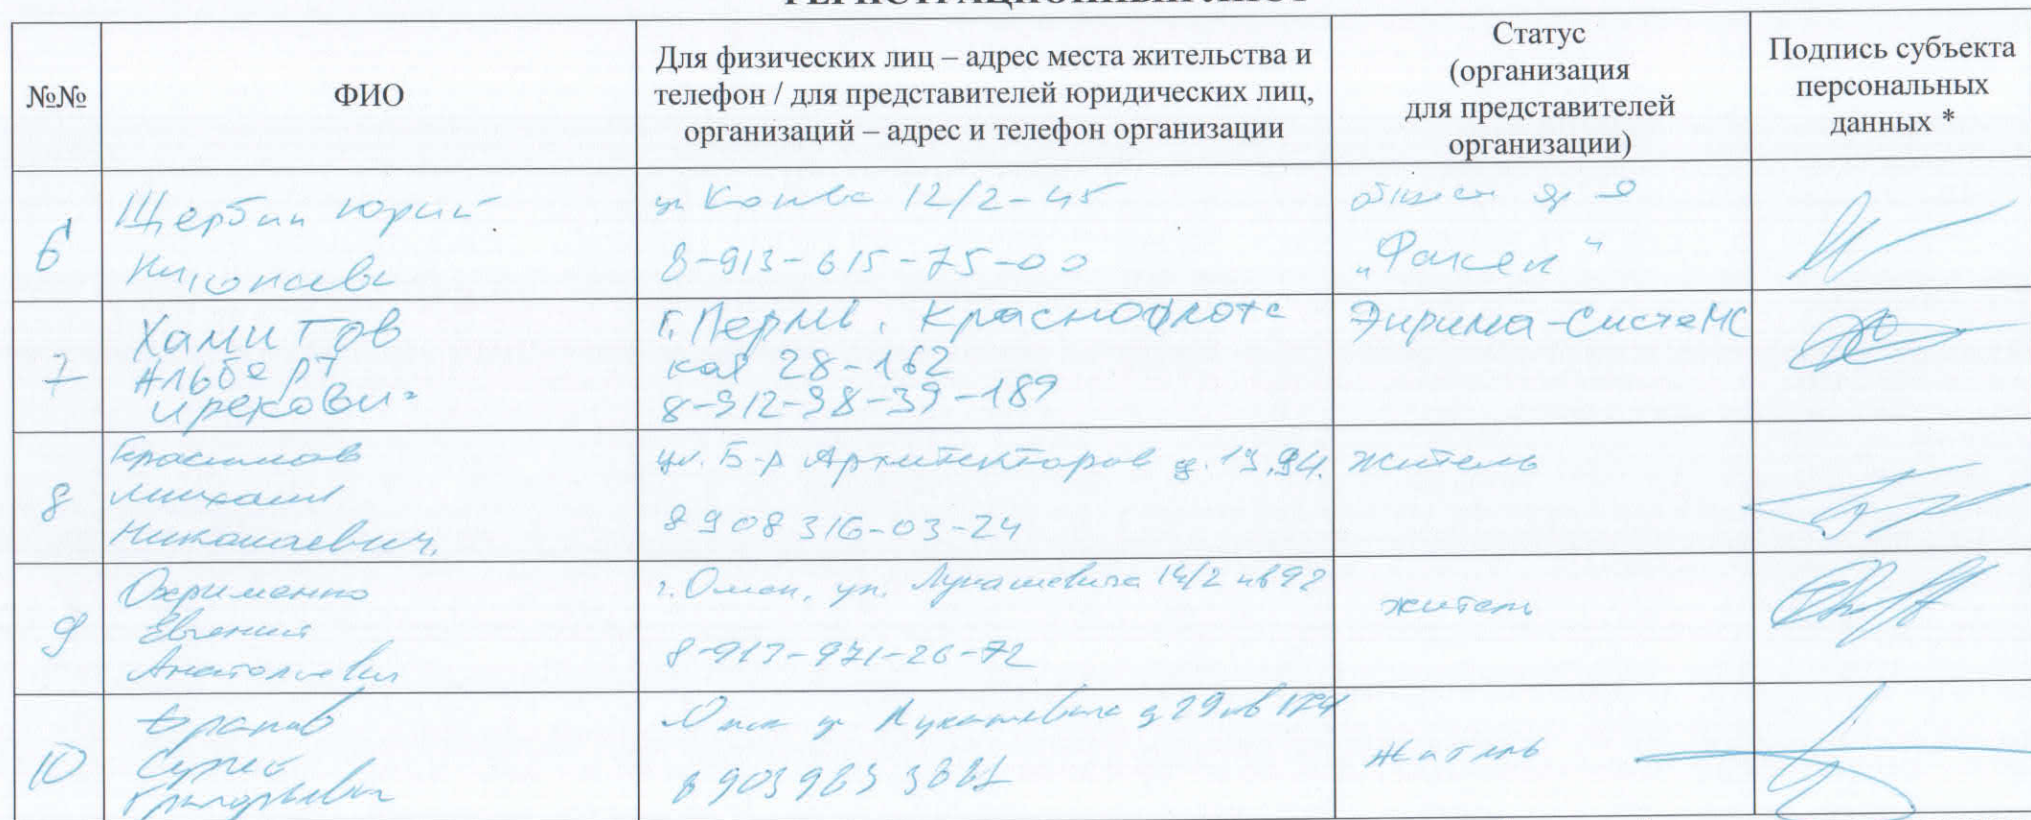 №№
ФИО
Для физических лиц – адрес места жительства и
телефон / для представителей юридических лиц,
организаций – адрес и телефон организации
Статус
(организация
для представителей
организации)
Подпись субъекта
персональных
данных *
6
Щербин Юрий
ул Конева 12/2-45
8-913-615-75-00
"Факел"
7
Хамитов
Альберт
Ирекович
г. Пермь. Краснофлотс
кая 28-162
8-912-98-39-189
Эирима-системс
8
Герасимов
Михаил
Николаевич.
ул. Б-р Архитекторов д. 13, 94.
8 908 316-03-24
житель
9
Охрименко
Евгений
Анатольевич
г. Омск, ул. Лукашевича 14/2 кв 92
8-913-971-26-72
житель
10
Сергей
Григорьевич
Омск ул Лукашевича д 29 кв
8 903 983
житель